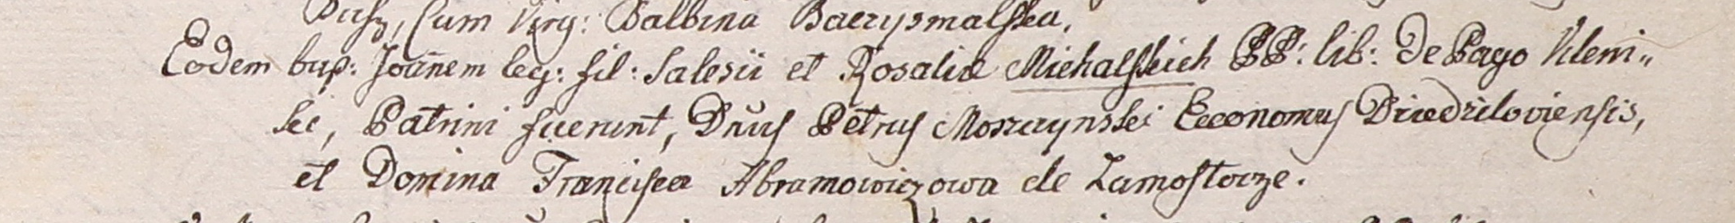 Cum Virg: Balbina Baczysmalska.
Eodem bap: Joañem leg: fil: Salesii et Rosaliæ Michalskich PP: lib: de Pago Uleni„
ski, Patrini fuerunt, Dñus Petrus Moszczynski Economus Dziedziloviensis,
et Domina Francisca Abramowiczowa de Zamostocze.